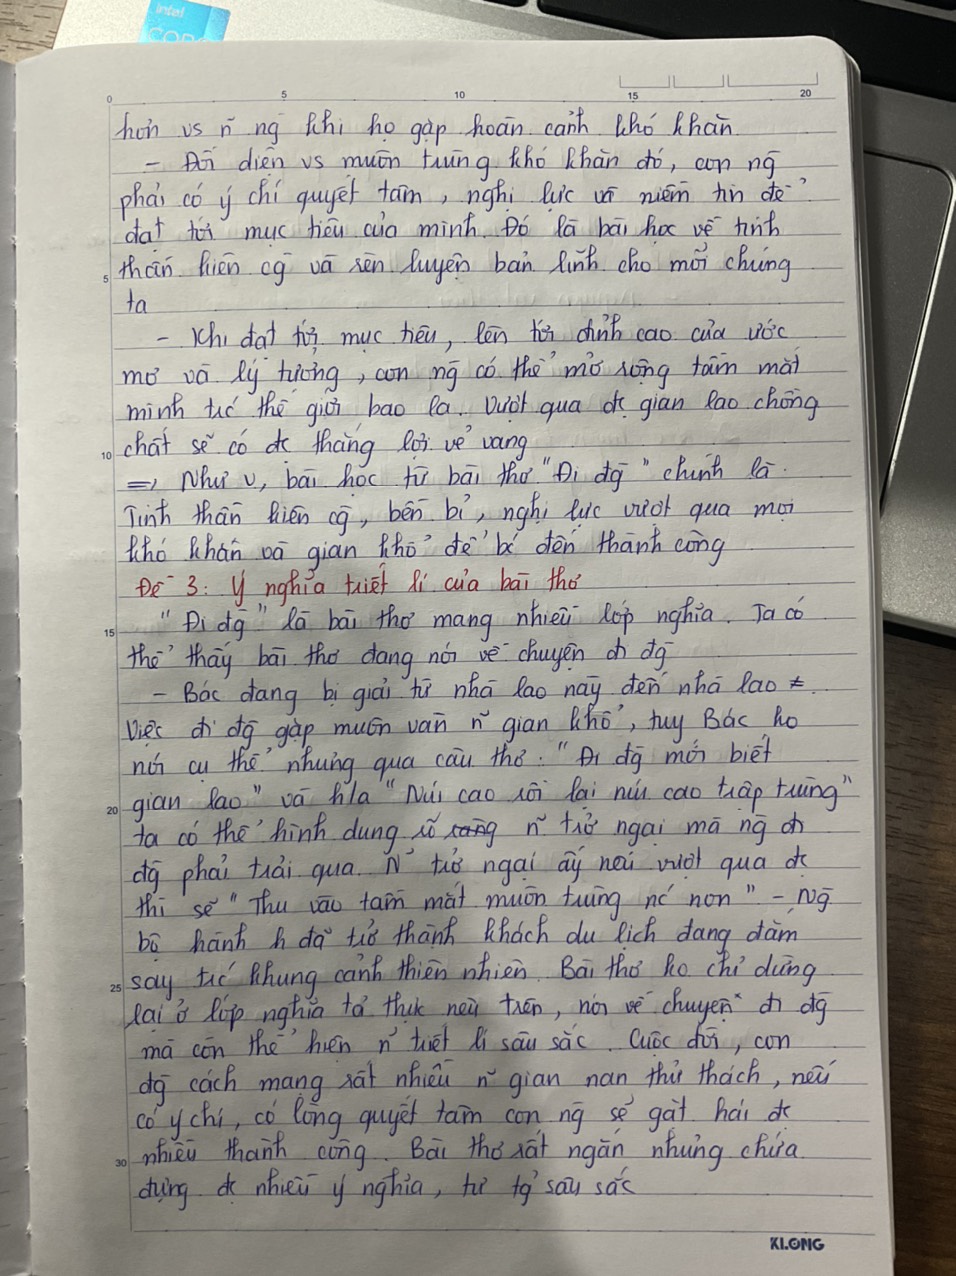 intel
CORE
0 5 10 15 20
hơn vs n~ ng khi họ gặp hoàn cảnh khó khăn
- Đối diện vs muôn trùng khó khăn đó, con ng
phải có ý chí quyết tâm, nghị lực và niềm tin để
đạt tới mục tiêu của mình. Đó là bài học về tinh
5 thần kiên cg̀ và rèn luyện bản lĩnh cho mỗi chúng
ta
- Khi đạt tới mục tiêu, lên tới đỉnh cao của ước
mơ và lý tưởng, con ng có thể mở rộng tầm mắt
mình trc' thế giới bao la. Vượt qua đc gian lao chồng
10 chất sẽ có đc thắng lợi vẻ vang
=> Như v, bài học từ bài thơ "Đi đg̀" chính là
Tinh thần kiên cg̀, bền bỉ, nghị lực vượt qua mọi
khó khăn và gian khổ để b' đến thành công
Đề 3: Ý nghĩa triết lí của bài thơ
15 "Đi đg̀" là bài thơ mang nhiều lớp nghĩa. Ta có
thể thấy bài thơ đang nói về chuyện đi đg̀
- Bác đang bị giải từ nhà lao này đến nhà lao ≠.
Việc đi đg̀ gặp muôn vàn n~ gian khổ, tuy Bác ko
nói cụ thể nhưng qua câu thơ: "Đi đg̀ mới biết
20 gian lao" và h/a "Núi cao rồi lại núi cao trập trùng"
ta có thể hình dung rõ ràng n~ trở ngại mà ng đi
đg̀ phải trải qua. N~ trở ngại ấy nếu vượt qua đc
thì sẽ "Thu vào tầm mắt muôn trùng nc' non" - Ng
bộ hành đã trở thành khách du lịch đang đắm
25 say trc' khung cảnh thiên nhiên. Bài thơ ko chỉ dừng
lại ở lớp nghĩa tả thực nêu trên, nói về chuyện đi đg̀
mà còn thể hiện n~ triết lí sâu sắc. Cuộc đời, con
đg̀ cách mạng rất nhiều n~ gian nan thử thách, nếu
có ý chí, có lòng quyết tâm con ng sẽ gặt hái đc
30 nhiều thành công. Bài thơ rất ngắn nhưng chứa
đựng đc nhiều ý nghĩa, tư tg̉ sâu sắc
KLONG